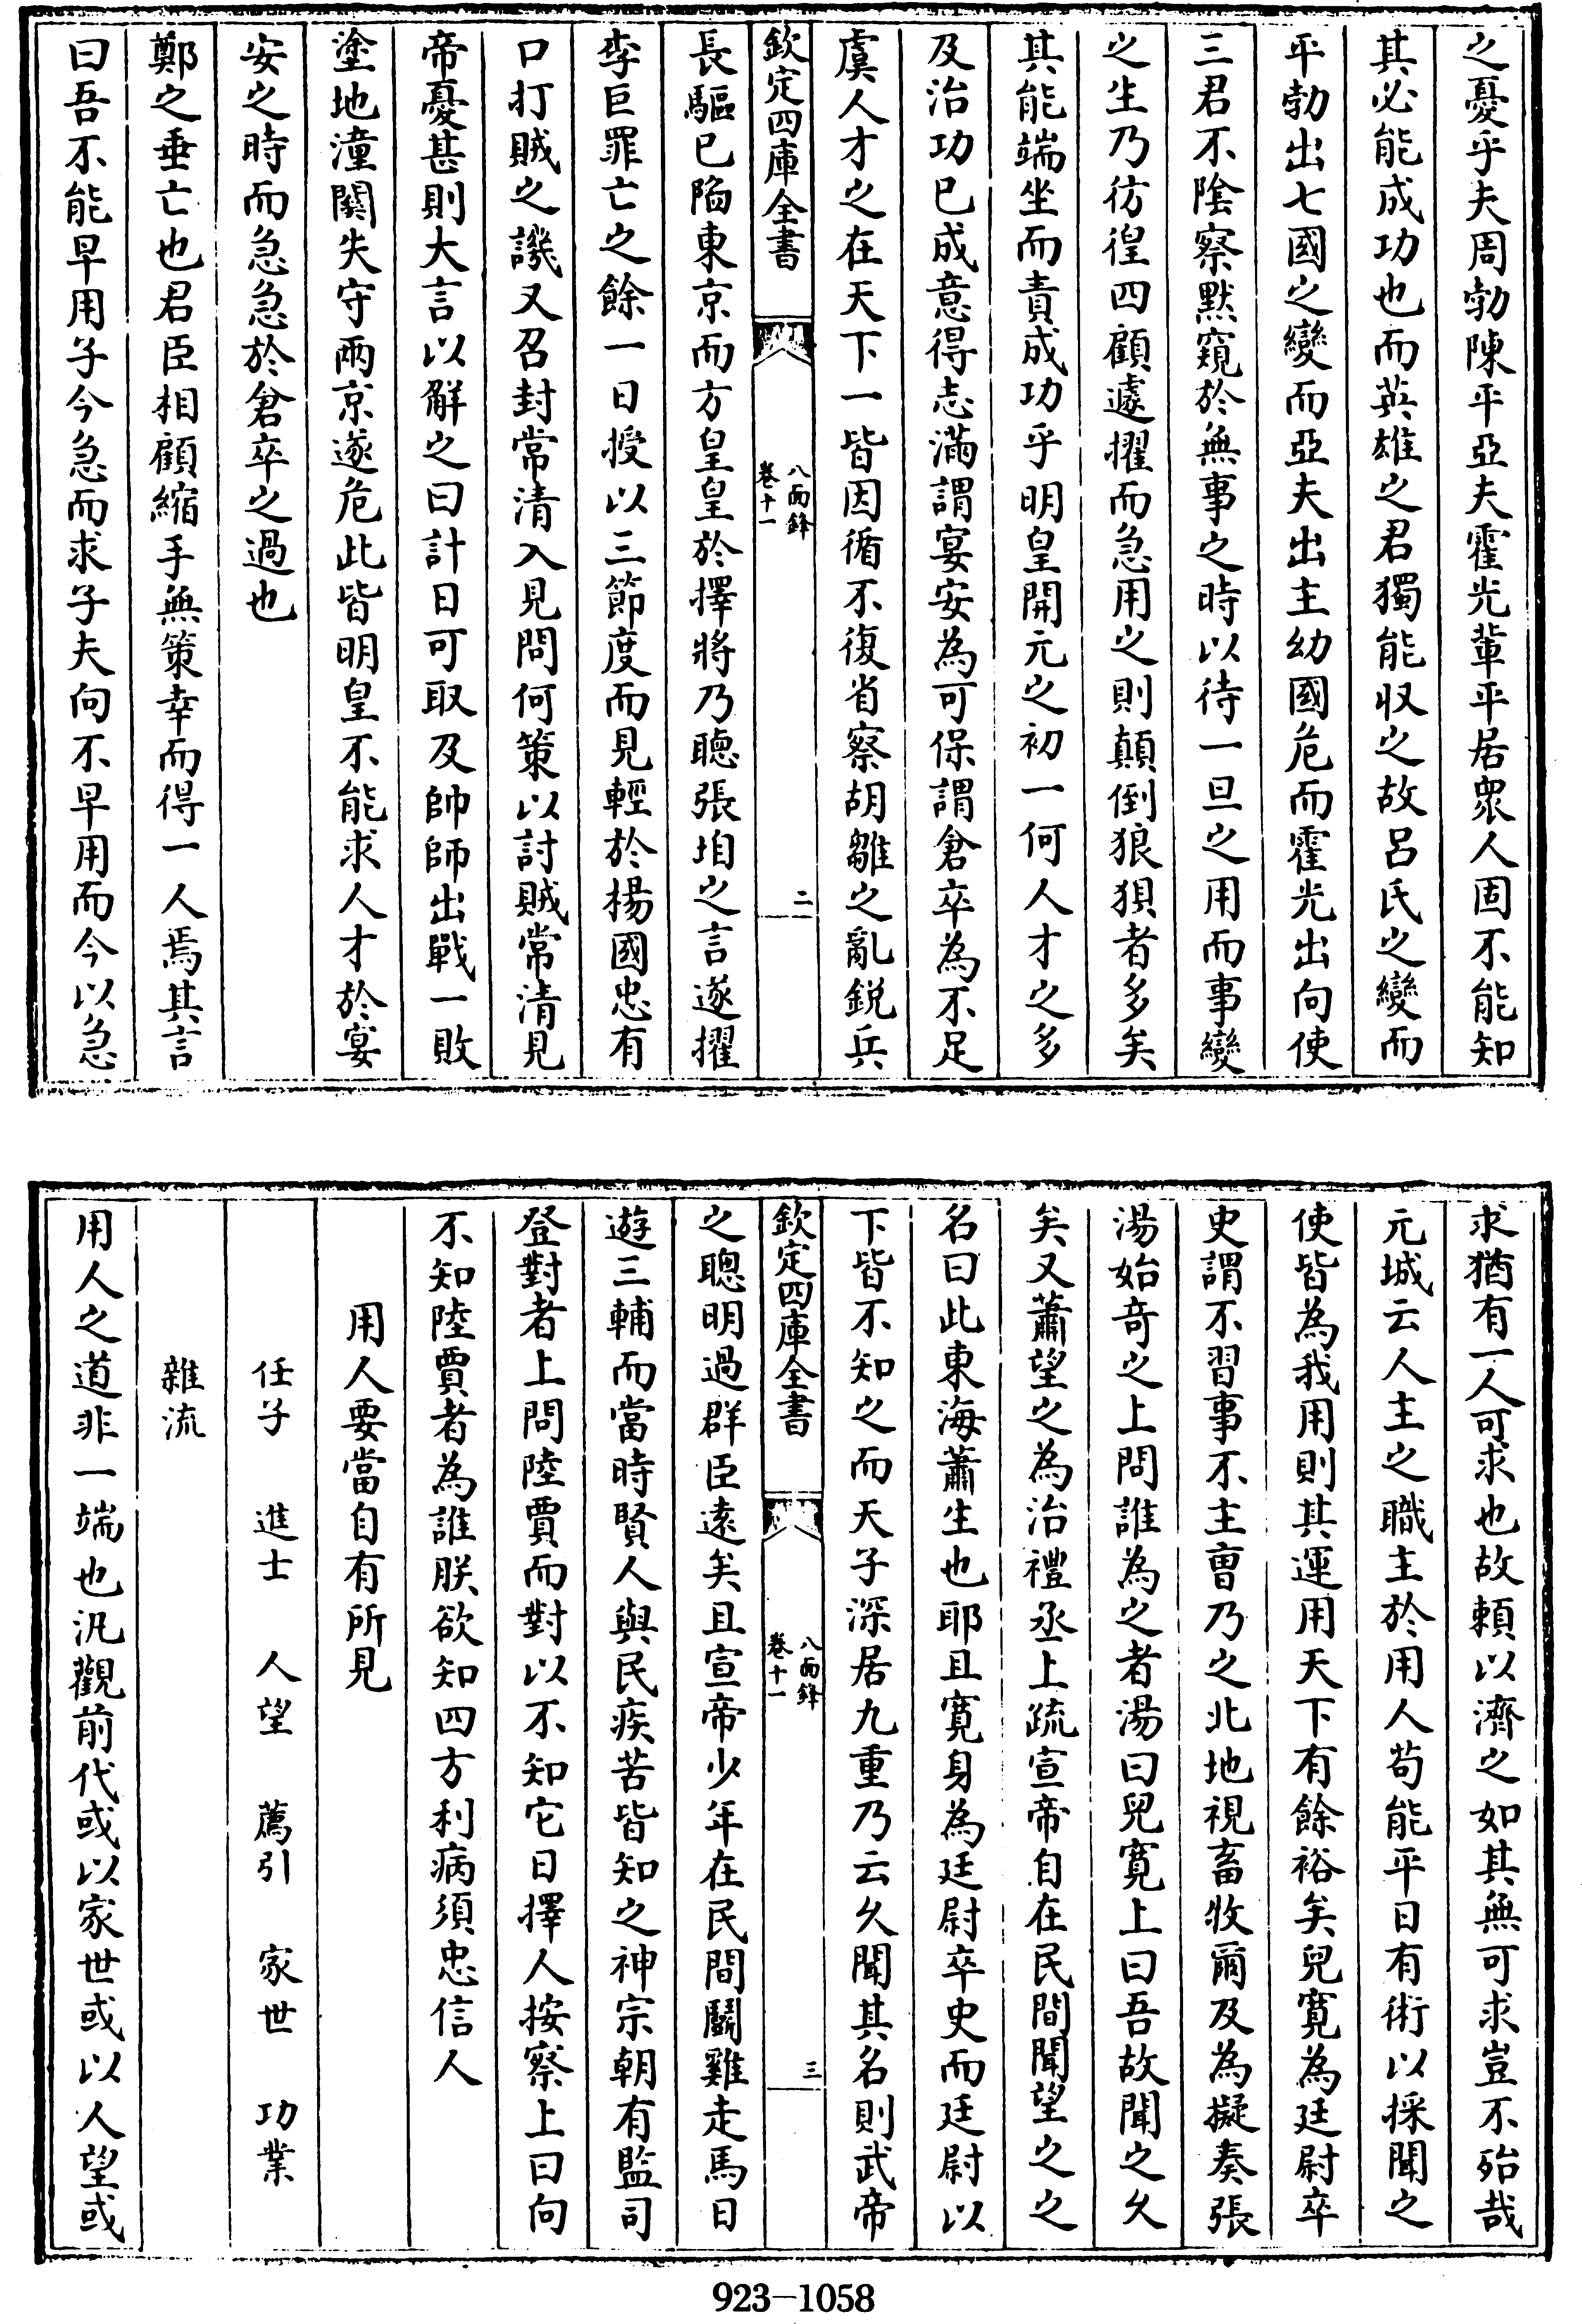 之憂乎夫周勃陳平亞夫霍光輩平居衆人固不能知
其必能成功也而英雄之君獨能収之故呂氏之變而
平勃出七國之變而亞夫出主幼國危而霍光出向使
三君不陰察默窺於無事之時以待一旦之用而事變
之生乃彷徨四顧遽擢而急用之則顛倒狼狽者多矣
其能端坐而責成功乎明皇開元之初一何人才之多
及治功已成意得志滿謂宴安為可保謂倉卒為不足
虞人才之在天下一皆因循不復省察胡雛之亂鋭兵
欽定四庫全書
八面鋒
卷十一
二
長驅已陥東京而方皇皇於擇將乃聴張垍之言遂擢
李巨罪亡之餘一日授以三節度而見輕於楊國忠有
口打賊之譏又召封常清入見問何策以討賊常清見
帝憂甚則大言以解之曰計日可取及帥師出戰一敗
塗地潼關失守兩京遂危此皆明皇不能求人才於宴
安之時而急急於倉卒之過也
鄭之垂亡也君臣相顧縮手無策幸而得一人焉其言
曰吾不能早用子今急而求子夫向不早用而今以急
求猶有一人可求也故頼以濟之如其無可求豈不殆哉
元城云人主之職主於用人苟能平日有術以採聞之
使皆為我用則其運用天下有餘裕矣兒寛為廷尉卒
史謂不習事不主曺乃之北地視畜牧爾及為擬奏張
湯始奇之上問誰為之者湯曰兒寛上曰吾故聞之久
矣又蕭望之為治禮丞上疏宣帝自在民間聞望之之
名曰此東海蕭生也耶且寛身為廷尉卒史而廷尉以
下皆不知之而天子深居九重乃云久聞其名則武帝
欽定四庫全書
八面鋒
卷十一
三
之聰明過群臣遠矣且宣帝少年在民間鬭雞走馬日
遊三輔而當時賢人與民疾苦皆知之神宗朝有監司
登對者上問陸賈而對以不知它日擇人按察上曰向
不知陸賈者為誰朕欲知四方利病須忠信人
用人要當自有所見
任子 進士 人望 薦引 家世 功業
雜流
用人之道非一端也汎觀前代或以家世或以人望或
923-1058